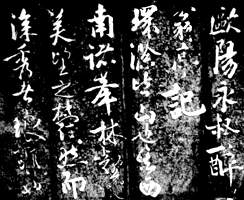 歐陽永叔醉
翁亭記
環滁皆山也其西
南諸峯林壑尤
美望之蔚然而
深秀者瑯琊也